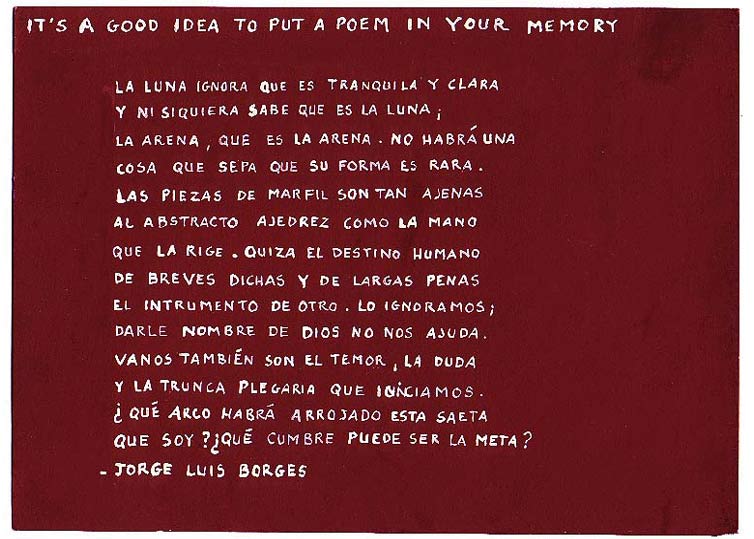 IT'S A GOOD IDEA TO PUT A POEM IN YOUR MEMORY
LA LUNA IGNORA QUE ES TRANQUILA Y CLARA
Y NI SIQUIERA SABE QUE ES LA LUNA;
LA ARENA, QUE ES LA ARENA. NO HABRÁ UNA
COSA QUE SEPA QUE SU FORMA ES RARA.
LAS PIEZAS DE MARFIL SON TAN AJENAS
AL ABSTRACTO AJEDREZ COMO LA MANO
QUE LA RIGE. QUIZA EL DESTINO HUMANO
DE BREVES DICHAS Y DE LARGAS PENAS
EL INTRUMENTO DE OTRO. LO IGNORAMOS;
DARLE NOMBRE DE DIOS NO NOS AJUDA.
VANOS TAMBIÉN SON EL TEMOR, LA DUDA
Y LA TRUNCA PLEGARIA QUE INICIAMOS.
¿QUÉ ARCO HABRÁ ARROJADO ESTA SAETA
QUE SOY? ¿QUÉ CUMBRE PUEDE SER LA META?
- JORGE LUIS BORGES